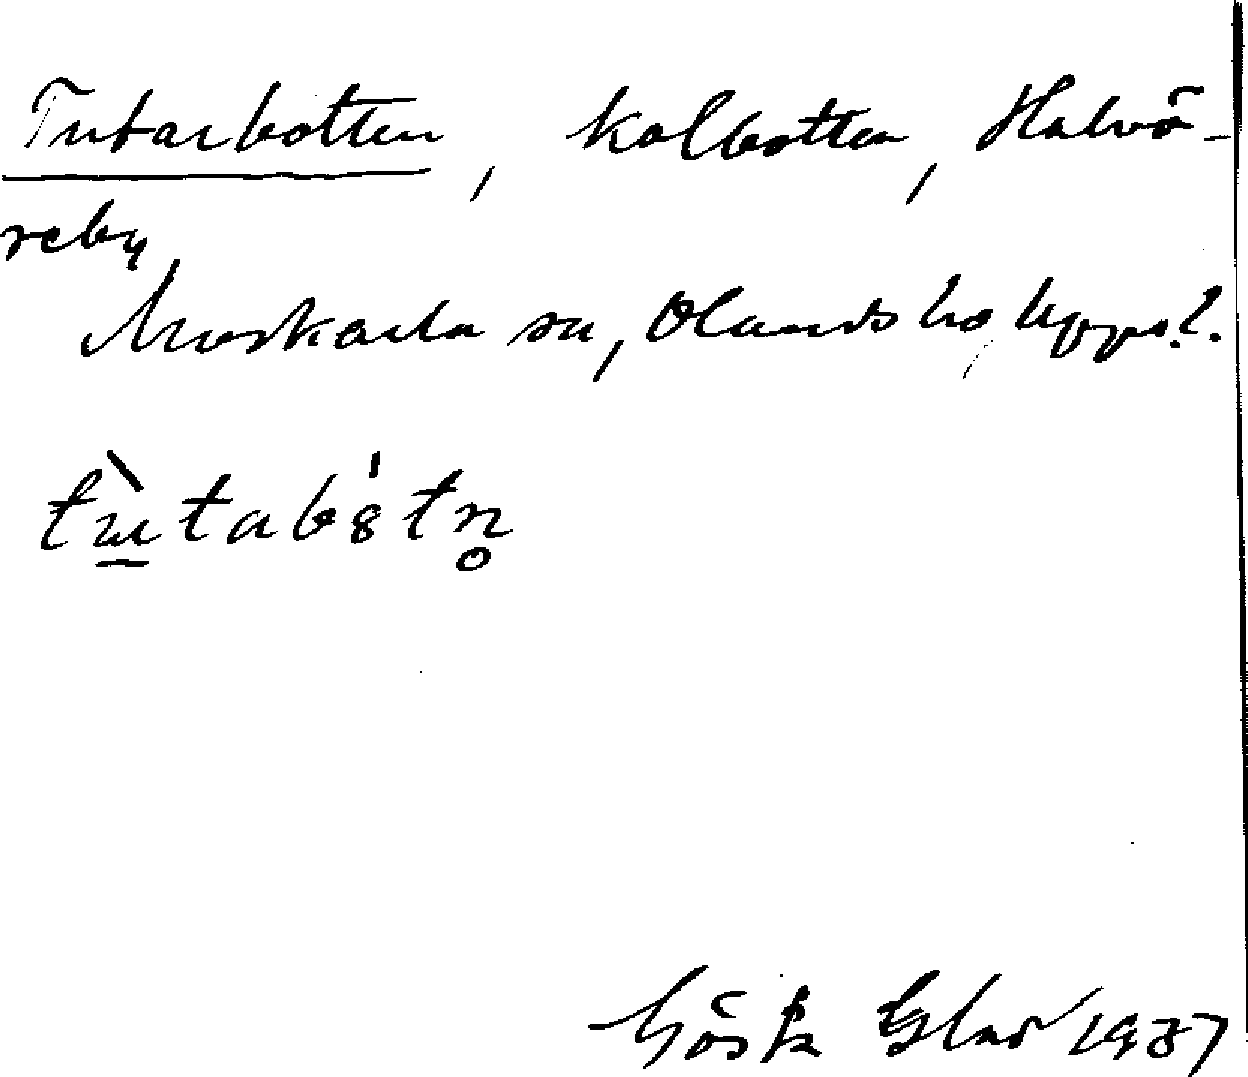 Tutarbotten, kolbotten, Halvö-
reby
Morkarla sn, Olands hd, Uppsl.
tùtabˈ8tn̥
Gösta 1937